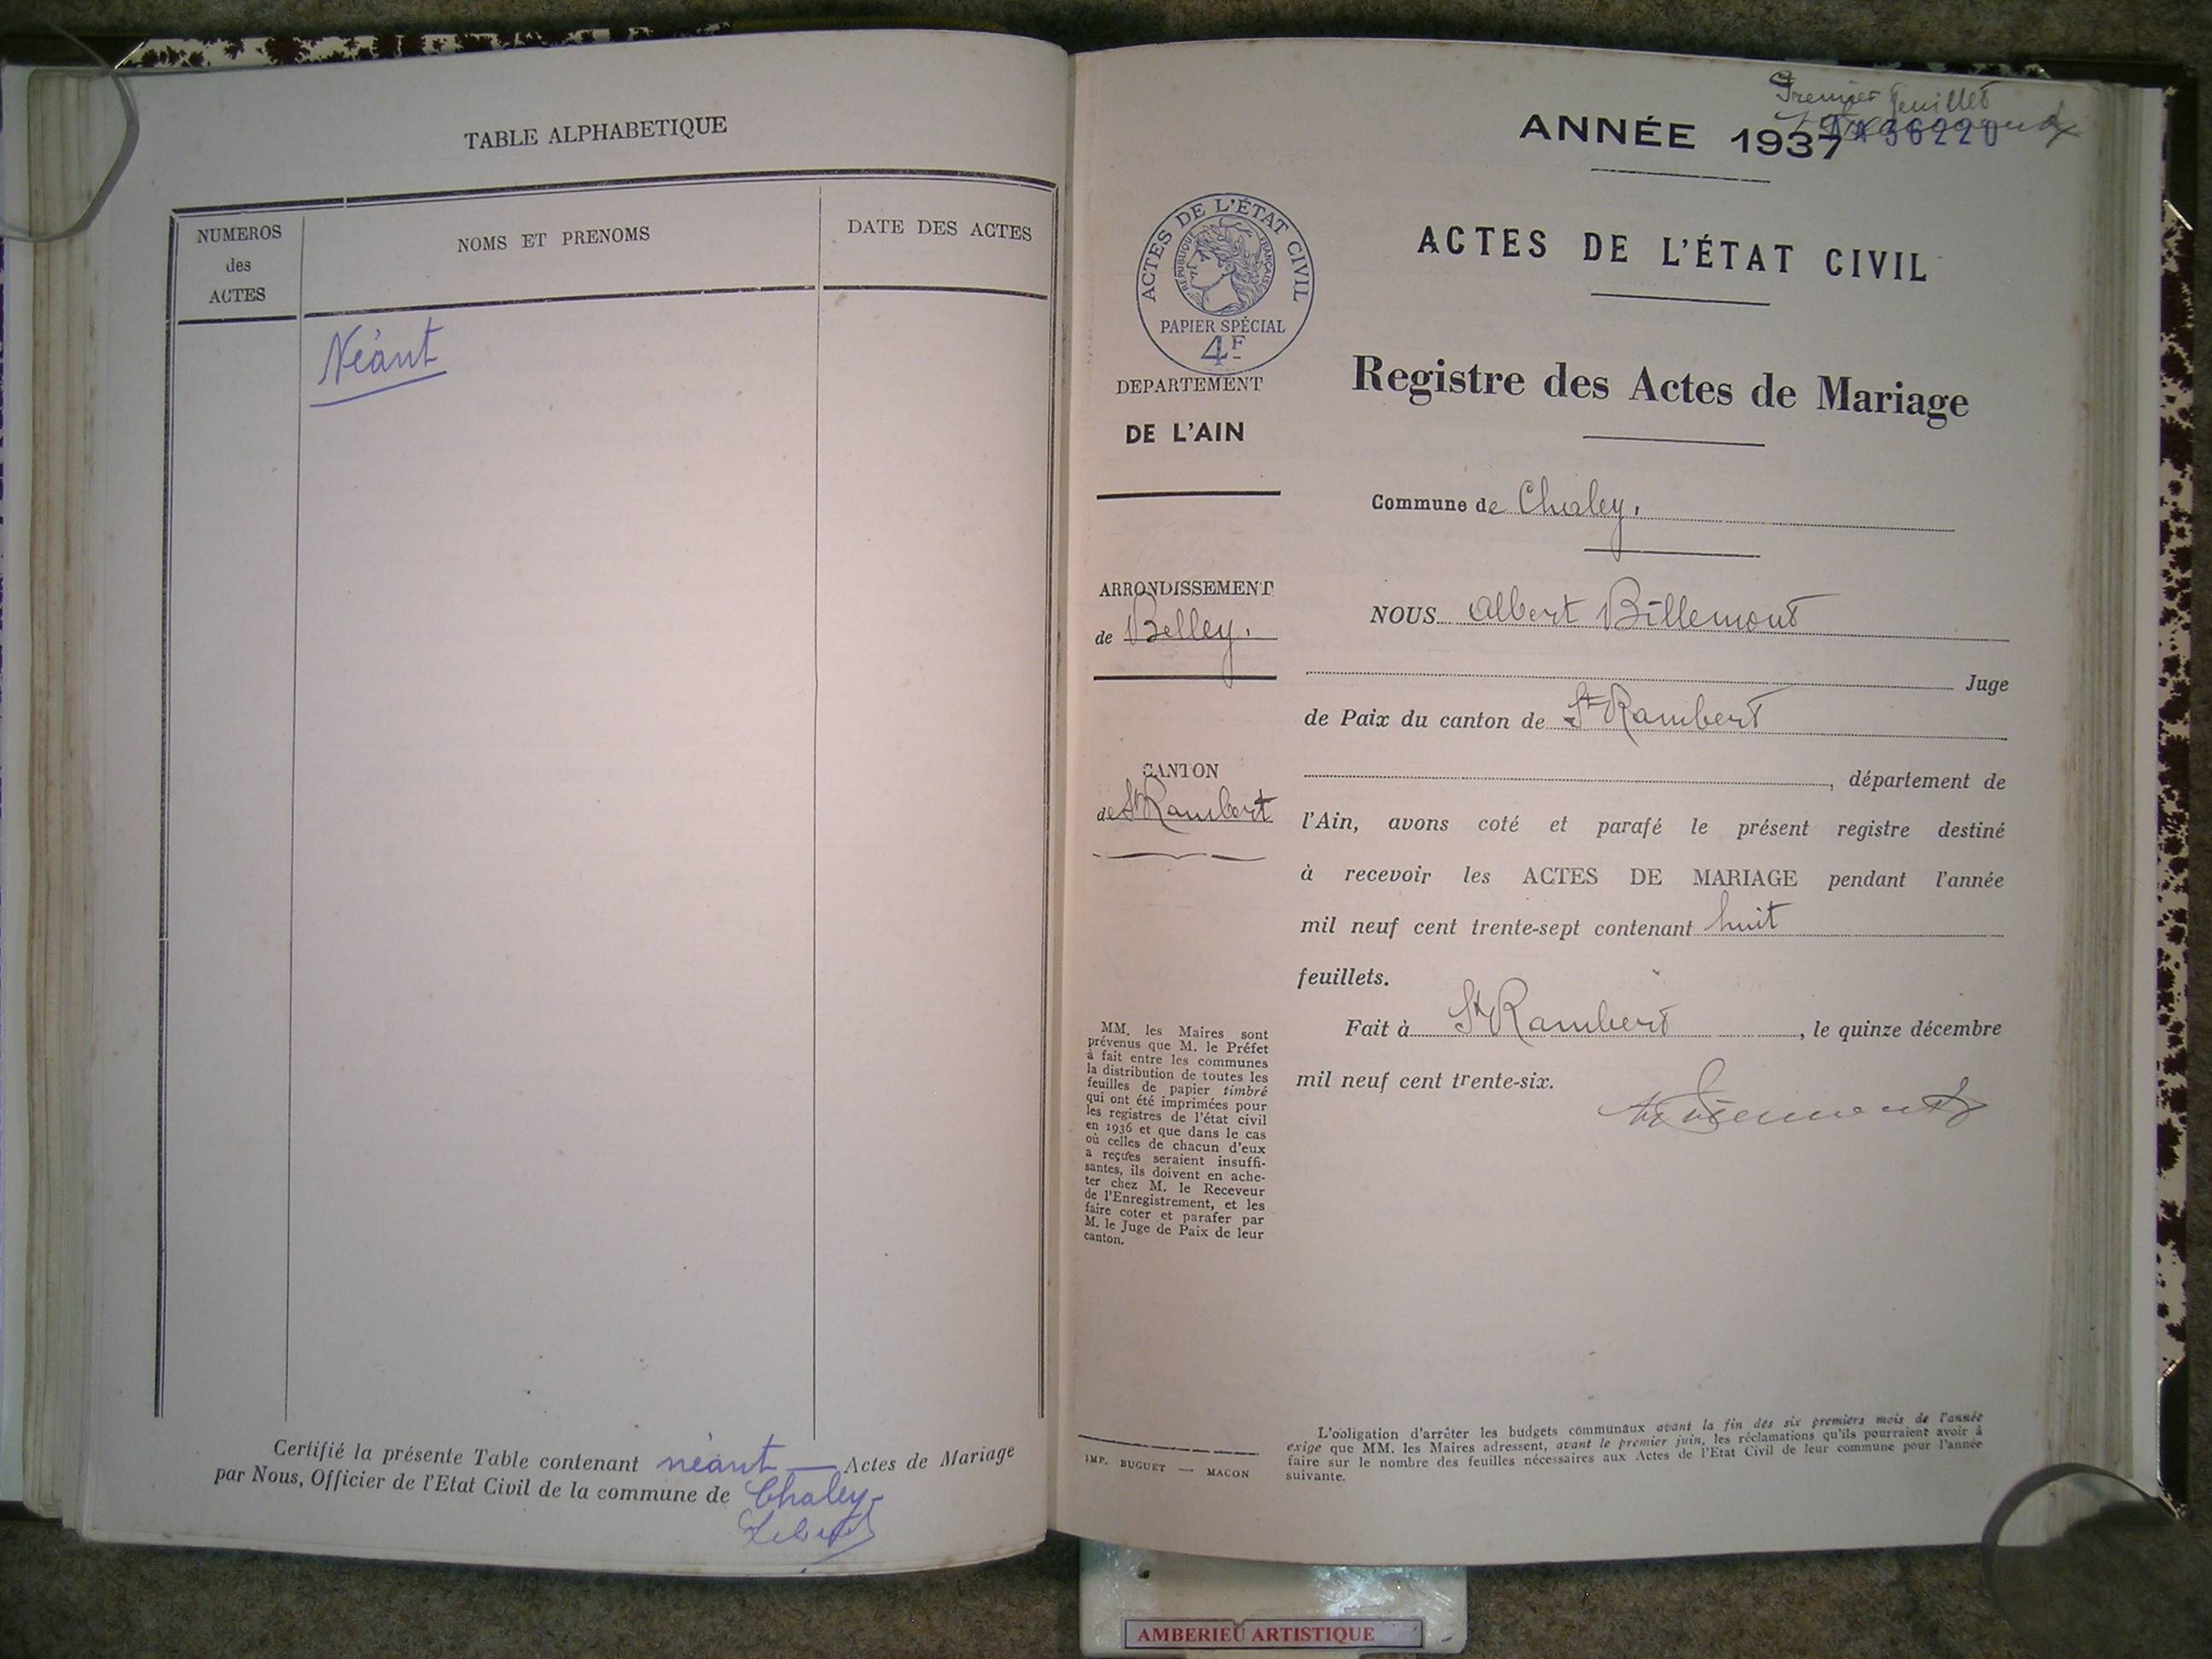 TABLE ALPHABETIQUE
NUMEROS
des
ACTES
NOMS ET PRENOMS
DATE DES ACTES
Néant
Certifié la présente Table contenant néant — Actes de Mariage
par Nous, Officier de l'Etat Civil de la commune de Chaley
Premier feuillet
ANNÉE 1937
36220
ACTES DE L'ÉTAT CIVIL
RÉPUBLIQUE FRANÇAISE
PAPIER SPÉCIAL
4F
DEPARTEMENT
DE L'AIN
ARRONDISSEMENT
de Belley.
CANTON
de St Rambert
MM. les Maires sont
prévenus que M. le Préfet
à fait entre les communes
la distribution de toutes les
feuilles de papier timbré
qui ont été imprimées pour
les registres de l'état civil
en 1936 et que dans le cas
où celles de chacun d'eux
a reçues seraient insuffi-
santes, ils doivent en ache-
ter chez M. le Receveur
de l'Enregistrement, et les
faire coter et parafer par
M. le Juge de Paix de leur
canton.
IMP. BUGUET — MACON
ACTES DE L'ÉTAT CIVIL
Registre des Actes de Mariage
Commune de Chaley.
NOUS Albert Billemont
Juge
de Paix du canton de St Rambert
, département de
l'Ain, avons coté et parafé le présent registre destiné
à recevoir les ACTES DE MARIAGE pendant l'année
mil neuf cent trente-sept contenant huit
feuillets.
Fait à St Rambert, le quinze décembre
mil neuf cent trente-six.
L'obligation d'arrêter les budgets communaux avant la fin des six premiers mois de l'année
exige que MM. les Maires adressent, avant le premier juin, les réclamations qu'ils pourraient avoir à
faire sur le nombre des feuilles nécessaires aux Actes de l'Etat Civil de leur commune pour l'année
suivante.
AMBERIEU ARTISTIQUE